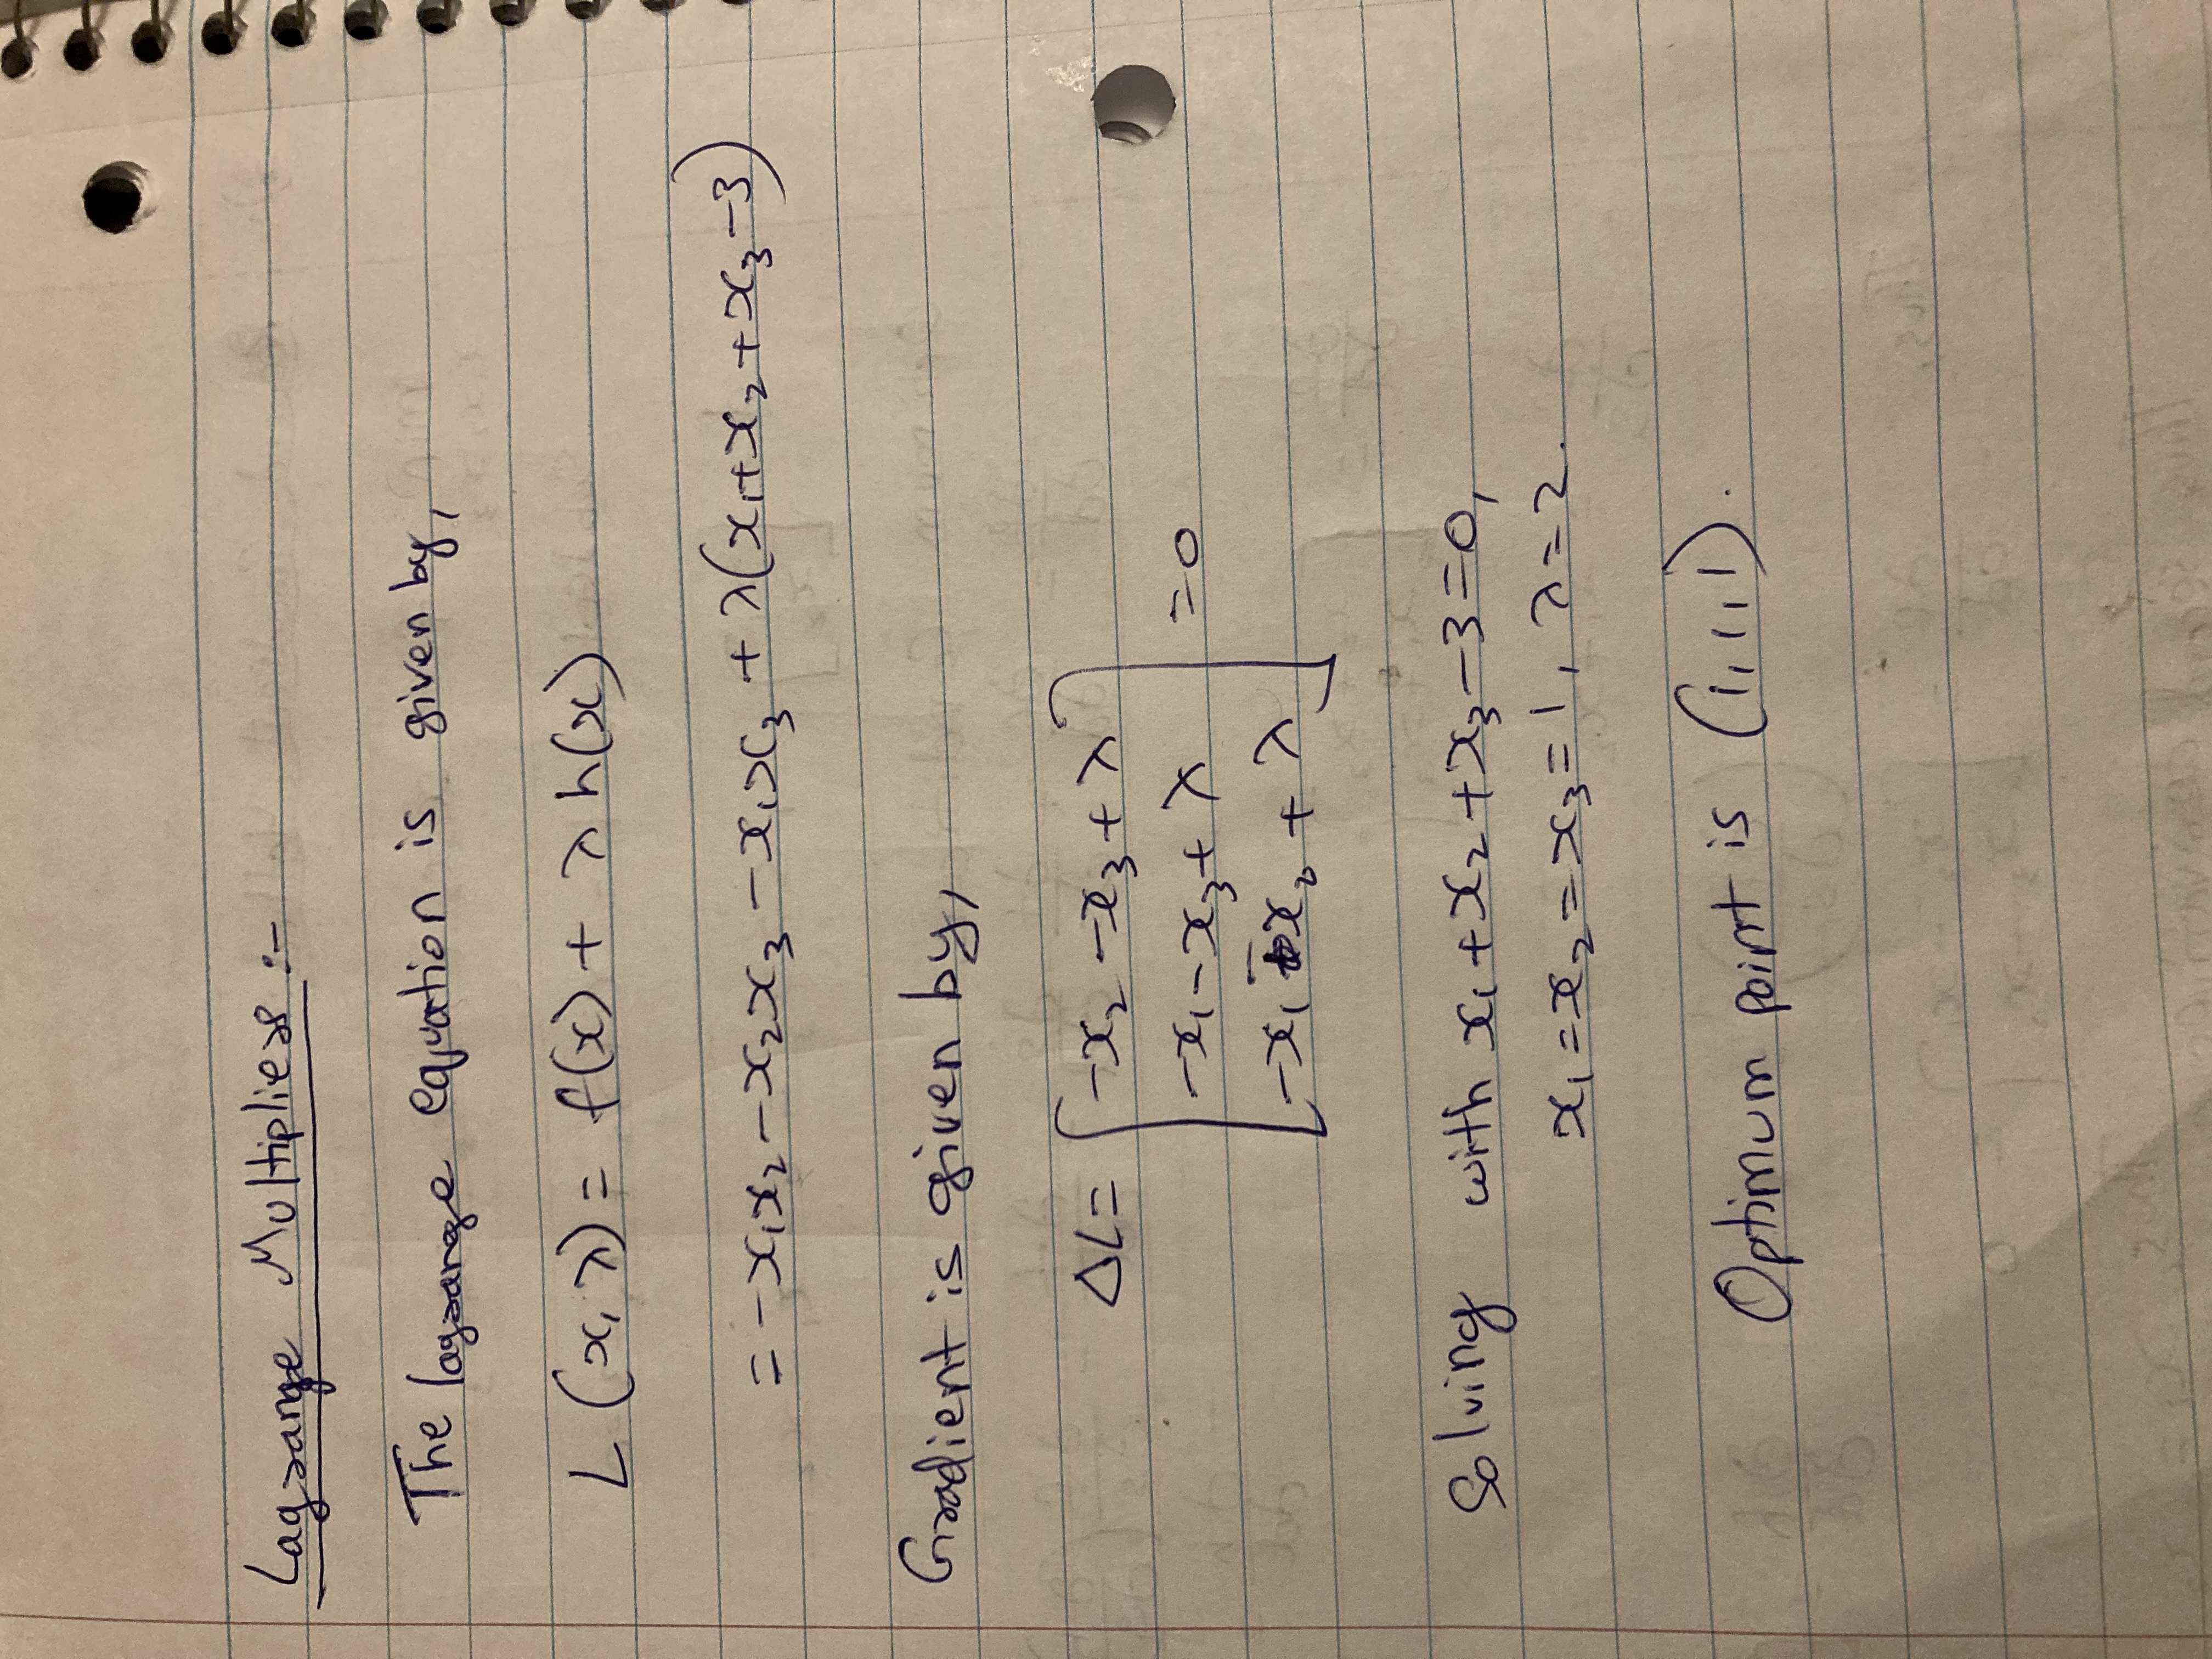 Lagrange Multipliers :-
The lagrange equation is given by,
L (x, λ) = f(x) + λ h(x)
= -x₁x₂ - x₂x₃ - x₁x₃ + λ(x₁+x₂+x₃-3)
Gradient is given by,
ΔL = [-x₂ - x₃ + λ
-x₁ - x₃ + λ
-x₁ - x₂ + λ] = 0
Solving with x₁+x₂+x₃-3=0,
x₁=x₂=x₃=1, λ=2.
Optimum point is (1,1,1).